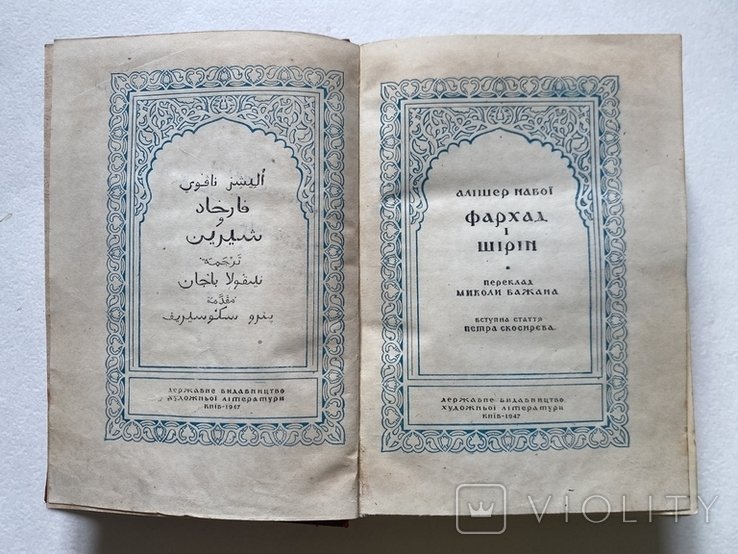 اليشز ناڤوي
فارخاد
و
شيرين
ترجمة
نيقولا باجان
مقدّمة
پترو سكوسيريف
державне видавництво
художньої літератури
київ-1947
Алішер Навої
Фархад
і
Шірін
переклад
Миколи Бажана
вступна стаття
Петра Скосирєва
державне видавництво
художньої літератури
київ-1947
VIOLITY